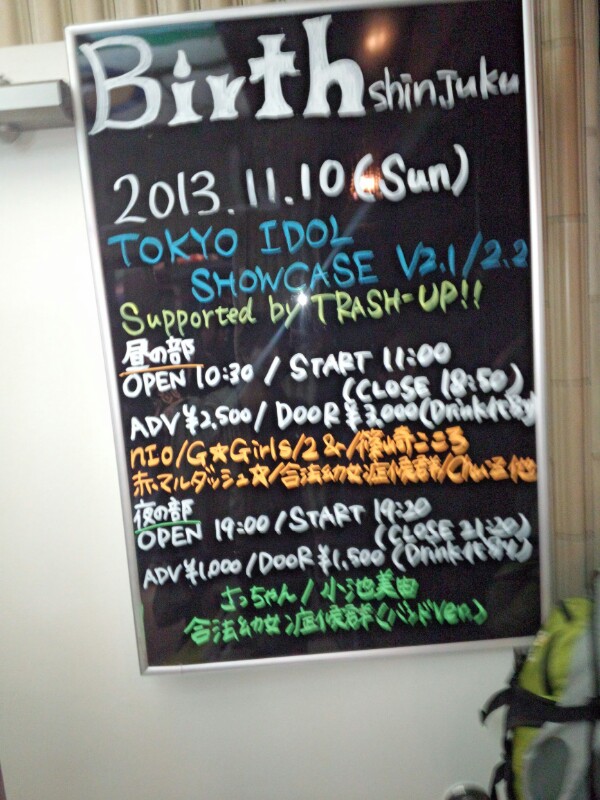 Birth shinjuku
2013.11.10(Sun)
TOKYO IDOL
SHOWCASE V2.1/2.2
Supported by TRASH-UP!!
昼の部
OPEN 10:30 / START 11:00
(CLOSE 18:50)
ADV ¥2,500 / DOOR ¥3,000(Drink代別)
nio/G☆Girls/2&/篠崎こころ
赤マルダッシュ☆/合法幼女症候群/Chu→活他
夜の部
OPEN 19:00 / START 19:20
(CLOSE 21:20)
ADV ¥1,000 / DOOR ¥1,500 (Drink代別)
さっちゃん / 小池美由
合法幼女症候群(バンドVer.)